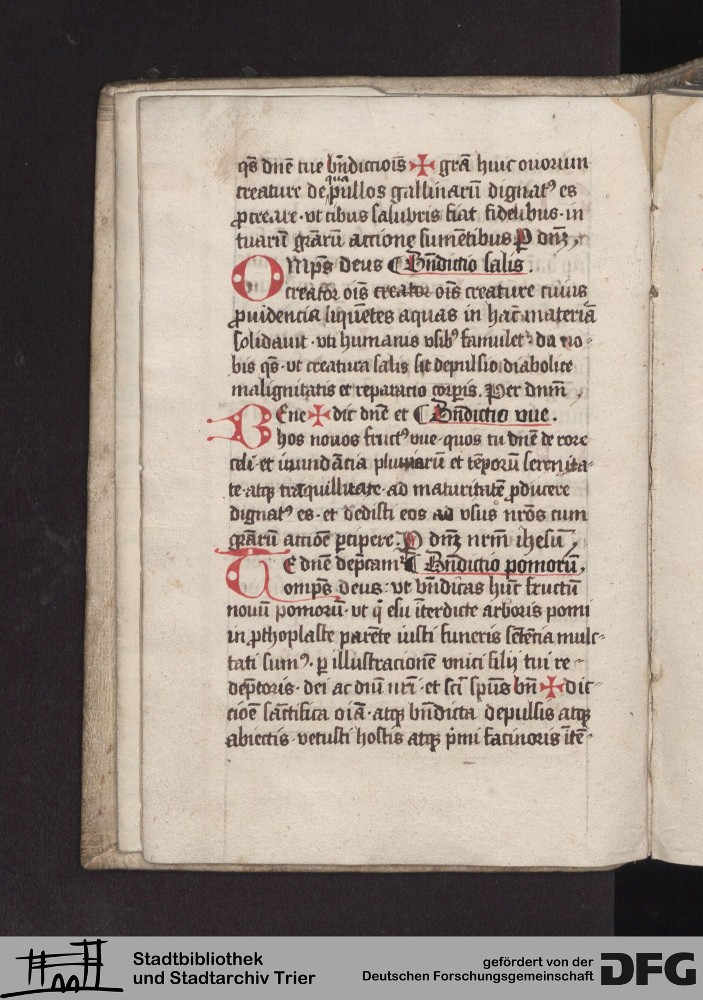 qs̄ dnē tue bn̄dictiois̄ ✠ grā huic ouorum
creature de qua pullos gallinarū dignatꝰ es
ꝓcreare · vt cibus salubris fiat fidelibus · in
tuarū grārū actione sumētibus P dnꝫ
OMps̄ deus ¶ Bn̄dictio salis .
creator ois̄ creator ois̄ creature cuius
ꝓuidencia liquētes aquas in hāc materiā
solidauit · vti humanis vsibꝰ famulet᷑ · da no-
bis qs̄ · vt creatura salis sit depulsio diabolice
malignitatis et reparacio corꝑis . Per dnm̄
BEne ✠ dic dnē et ¶ Bn̄dictio vue .
hos nouos fructꝰ vue · quos tu dnē de rore
celi · et inundācia pluuiarū et tēporū serenita-
te · atqꝫ trāquillitate · ad maturitatē ꝓducere
dignatꝰ es · et dedisti eos ad vsus nr̄os cum
grārū actiōe ꝑcipere · P dnꝫ nrm̄ ihesū
TE dnē dep̄cam᷑ ¶ Bn̄dictio pomorū .
omps̄ deus : vt bn̄dicas hūc fructū
nouū pomorū · vt q̄ esu īterdicte arboris pomi
in ꝓthoplasto parēte iusti funeris sētēcia mulc-
tati sumꝰ . ꝑ illustracionē vnici filij tui re-
dēptoris · dei ac dn̄i nr̄i · et sc̄i spūs bn̄ ✠ dic-
ciōe sāctifica oīa · atqꝫ bn̄dicta depulsis atqꝫ
abiectis · vetusti hostis atqꝫ p̄mi facinoris ītē-
Stadtbibliothek
und Stadtarchiv Trier
gefördert von der
Deutschen Forschungsgemeinschaft
DFG